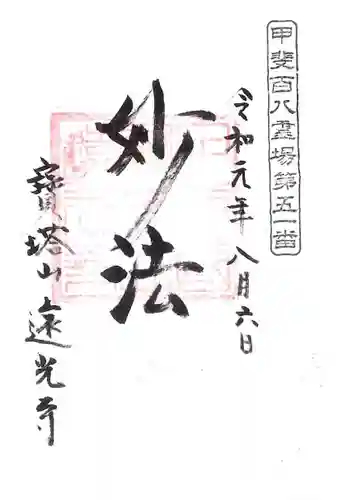 甲斐百八霊場第五一番
令和元年八月六日
妙法
寶塔山遠光寺